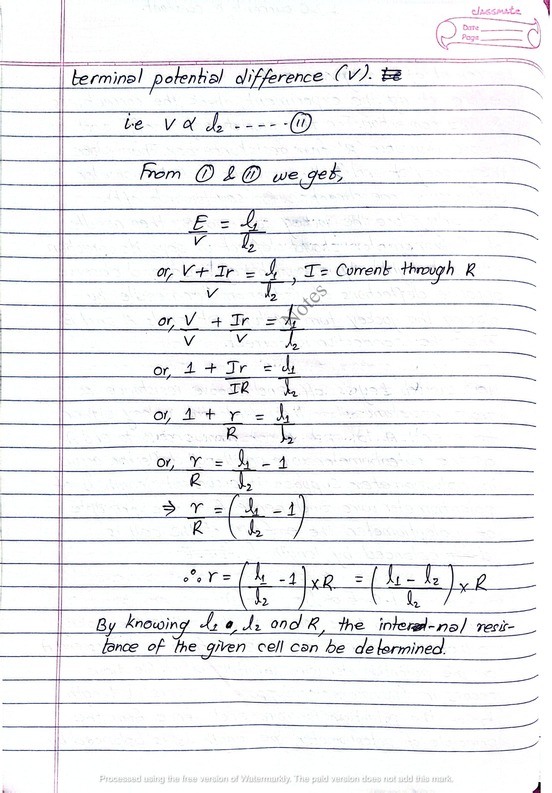 classmate
Date
Page
terminal potential difference (V).
i.e V ∝ l₂ ----- (II)
From (I) & (II) we get,
E/V = l₁/l₂
or, (V + Ir)/V = l₁/l₂, I = Current through R
or, V/V + Ir/V = l₁/l₂
Notes
or, 1 + Ir/IR = l₁/l₂
or, 1 + r/R = l₁/l₂
or, r/R = l₁/l₂ - 1
⇒ r/R = (l₁/l₂ - 1)
∴ r = (l₁/l₂ - 1) × R = ((l₁ - l₂)/l₂) × R
By knowing l₁, l₂ and R, the inter-nal resis-
tance of the given cell can be determined.
Processed using the free version of Watermarkly. The paid version does not add this mark.